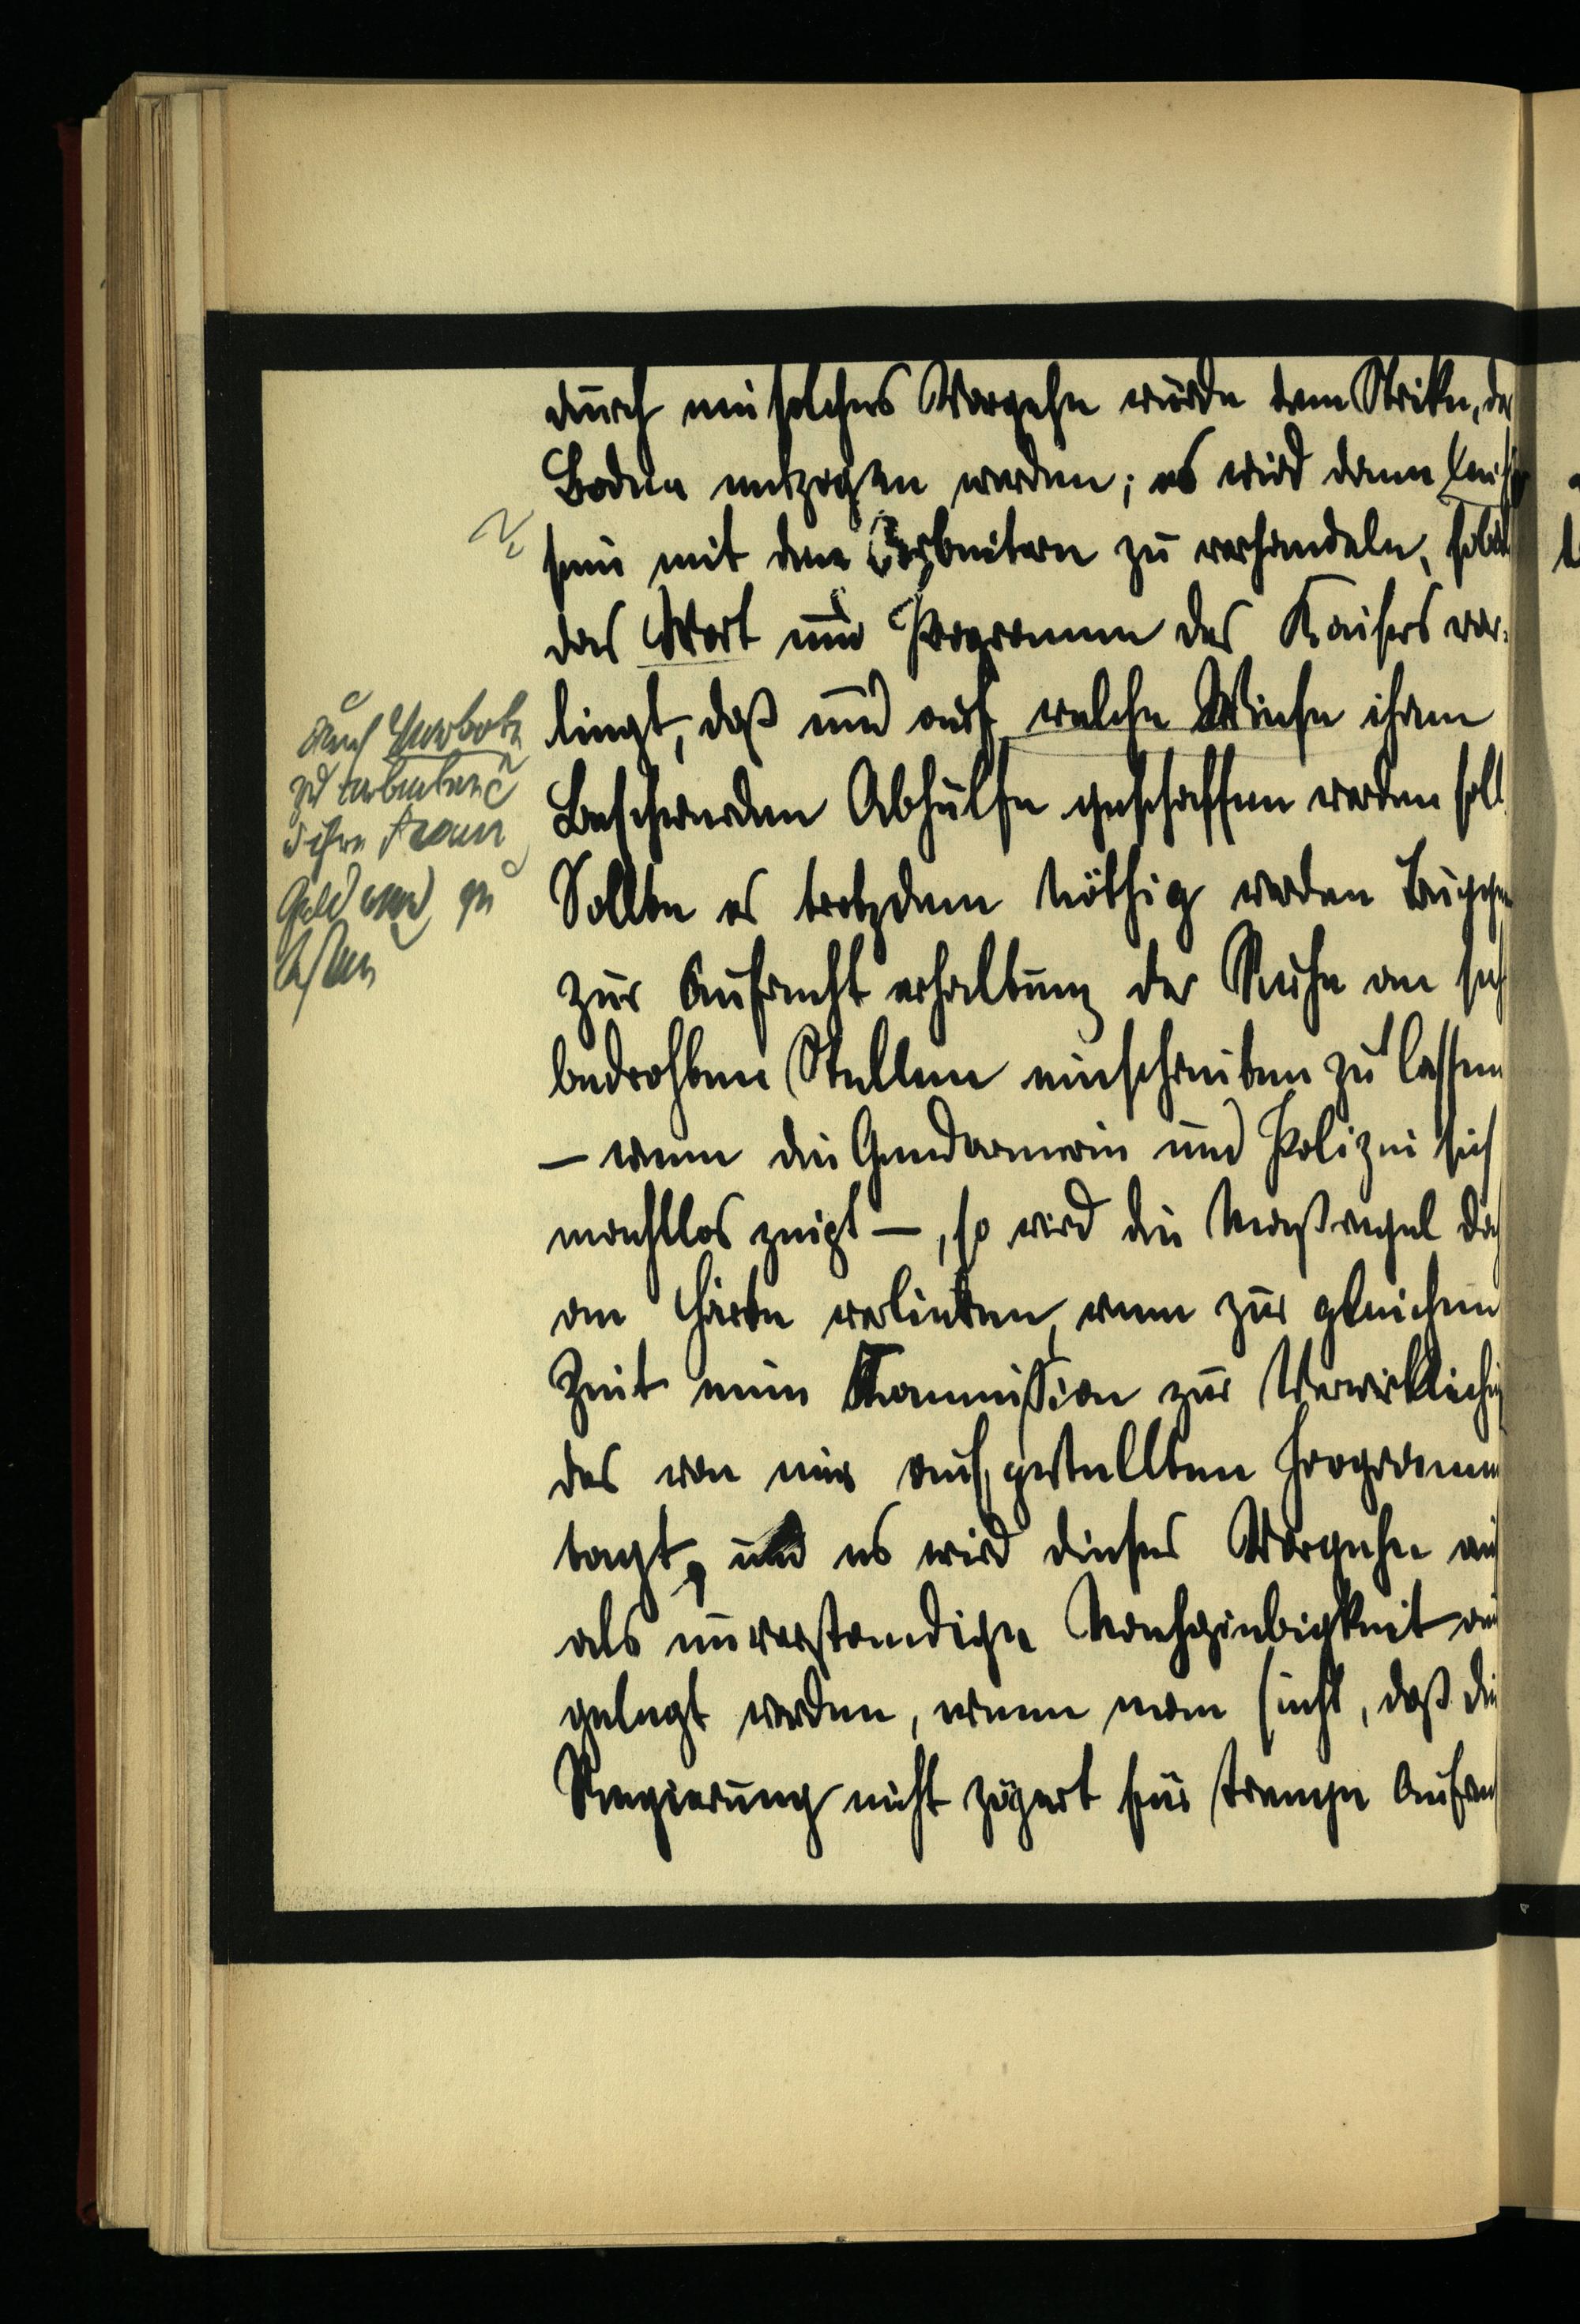 durch ein solches Vorgehn würde dem Strike, de
Boden entzogen werden; es wird dann leich
sein mit den Arbeitern zu verhandeln, sobal
das Wort und Programm des Kaisers vor-
liegt, daß und auf welche Weise ihren
Beschwerden Abhülfe geschaffen werden soll
Sollte es trotzdem nöthig werden Truppen
zur Aufrecht erhaltung der Ruhe an sich
bedrohten Stellen einschreiten zu lassen
— wenn die Gendarmerie und Polizei sich
machtlos zeigt —, so wird die Maßregel doch
an Härte verlieren, wenn zur gleichen
Zeit eine Kommission zur Verwirklichung
des von mir aufgestellten Programm
tagt, und es wird dieses Vorgehn
als unverständige Nachgiebigkeit
gelegt werden, wenn man sieht, daß die
Regierung nicht zögert für strenge Aufre
auf
zu arbeiten
ihre
Geld und zu